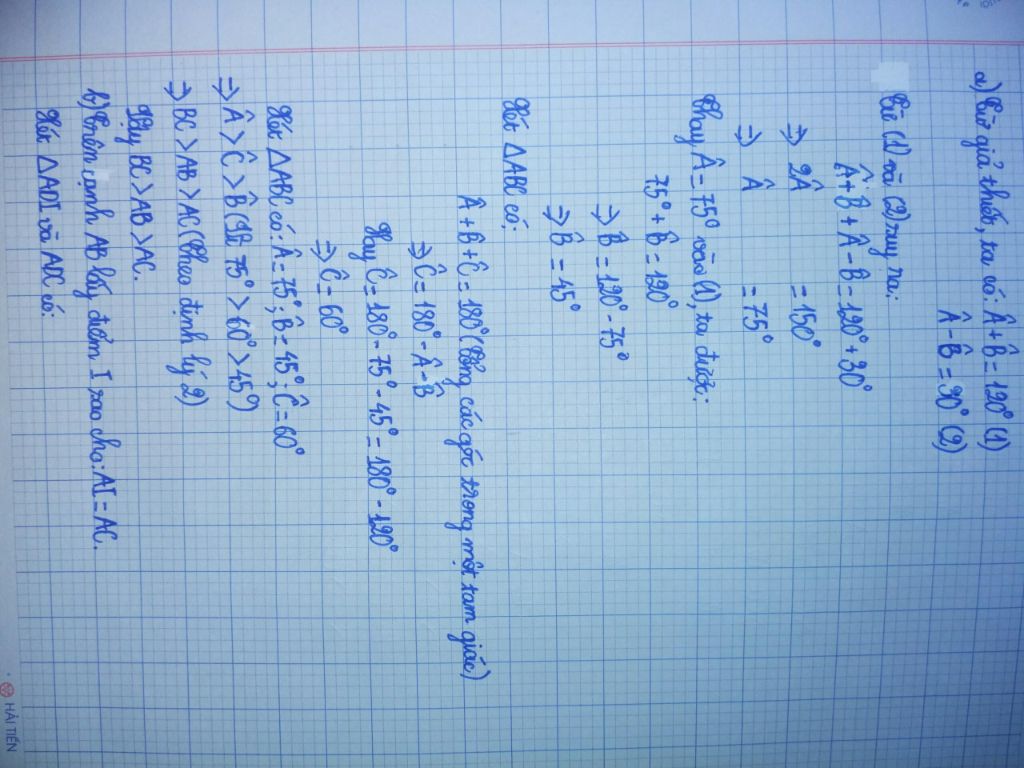 a) Từ giả thiết, ta có: Â + B̂ = 120° (1)
Â - B̂ = 30° (2)
Từ (1) và (2) suy ra:
Â + B̂ + Â - B̂ = 120° + 30°
⇒ 2Â = 150°
⇒ Â = 75°
Thay Â = 75° vào (1), ta được:
75° + B̂ = 120°
⇒ B̂ = 120° - 75°
⇒ B̂ = 45°
Xét ΔABC có:
Â + B̂ + Ĉ = 180° (Tổng các góc trong một tam giác)
⇒ Ĉ = 180° - Â - B̂
Hay Ĉ = 180° - 75° - 45° = 180° - 120°
⇒ Ĉ = 60°
Xét ΔABC có: Â = 75°; B̂ = 45°; Ĉ = 60°
⇒ Â > Ĉ > B̂ (Vì 75° > 60° > 45°)
⇒ BC > AB > AC (Theo định lý 2)
Vậy BC > AB > AC.
b) Trên cạnh AB lấy điểm I sao cho: AI = AC.
Xét ΔADI và ADC có:
HẢI TIẾN